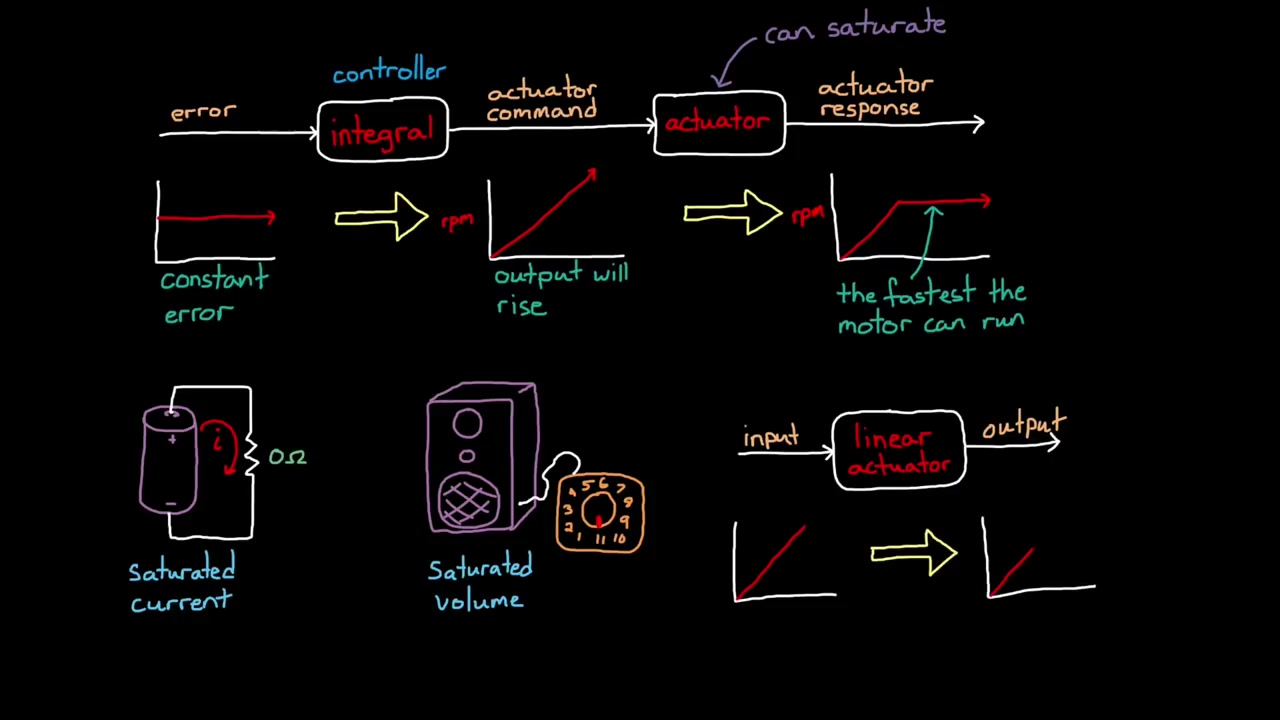 can saturate
controller
error
integral
actuator
command
actuator
actuator
response
rpm
rpm
constant
error
output will
rise
the fastest the
motor can run
+
i
0Ω
-
Saturated
current
1 2 3 4 5 6 7 8 9 10 11
Saturated
volume
input
linear
actuator
output